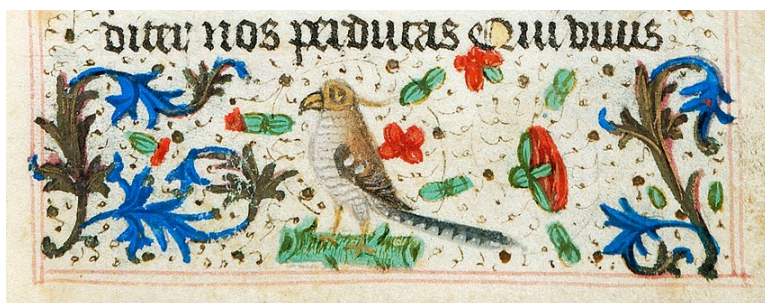 diter nos perducas Qui viuis